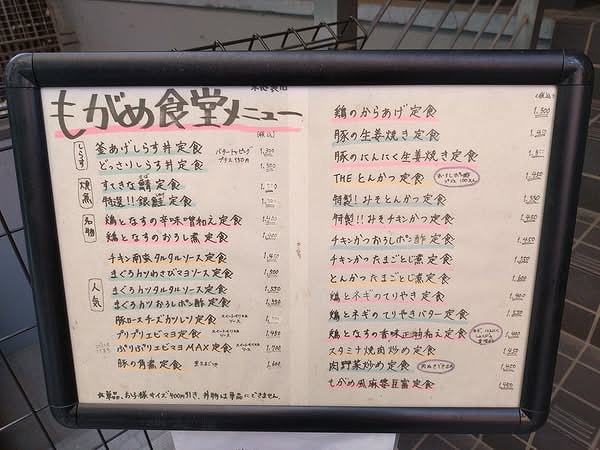 もがめ食堂メニュー
(税込)
しらす
釜あげしらす丼定食 バタートッピング プラス150円 1,300
どっさりしらす丼定食 1,500
焼魚
すてきな鯖定食
特選!!銀鮭定食
名物
鶏となすの辛味噌和え定食 1,400
鶏となすのおろし煮定食 1,400
チキン南蛮タルタルソース定食 1,350
まぐろカツわさびマヨソース定食 1,500
人気
まぐろカツタルタルソース定食 1,550
まぐろカツおろしポン酢定食 1,550
豚ロースチーズカツレツ定食 スイートチリマヨソース 1,500
プリプリエビマヨ定食 1,400
ぷりぷりエビマヨMAX定食 1,700
豚の角煮定食 1,600
☆単品、お子様サイズ400円引き、丼物は単品にできません。
(税込)
鶏のからあげ定食 1,300
豚の生姜焼き定食 1,450
豚のにんにく生姜焼き定食
THEとんかつ定食 おろしポン酢 プラス100えん
特製!みそとんかつ定食 1,550
特製!!みそチキンかつ定食 1,450
チキンかつおろしポン酢定食 1,450
チキンかつたまごとじ煮定食 1,500
とんかつたまごとじ煮定食 1,600
鶏とネギのてりやき定食 1,400
鶏とネギのてりやきバター定食 1,550
鶏となすの香味正油和え定食 1,400
スタミナ焼肉炒め定食 1,450
肉野菜炒め定食 肉ぬきできます 1,400
もがめ風麻婆豆腐定食 1,400